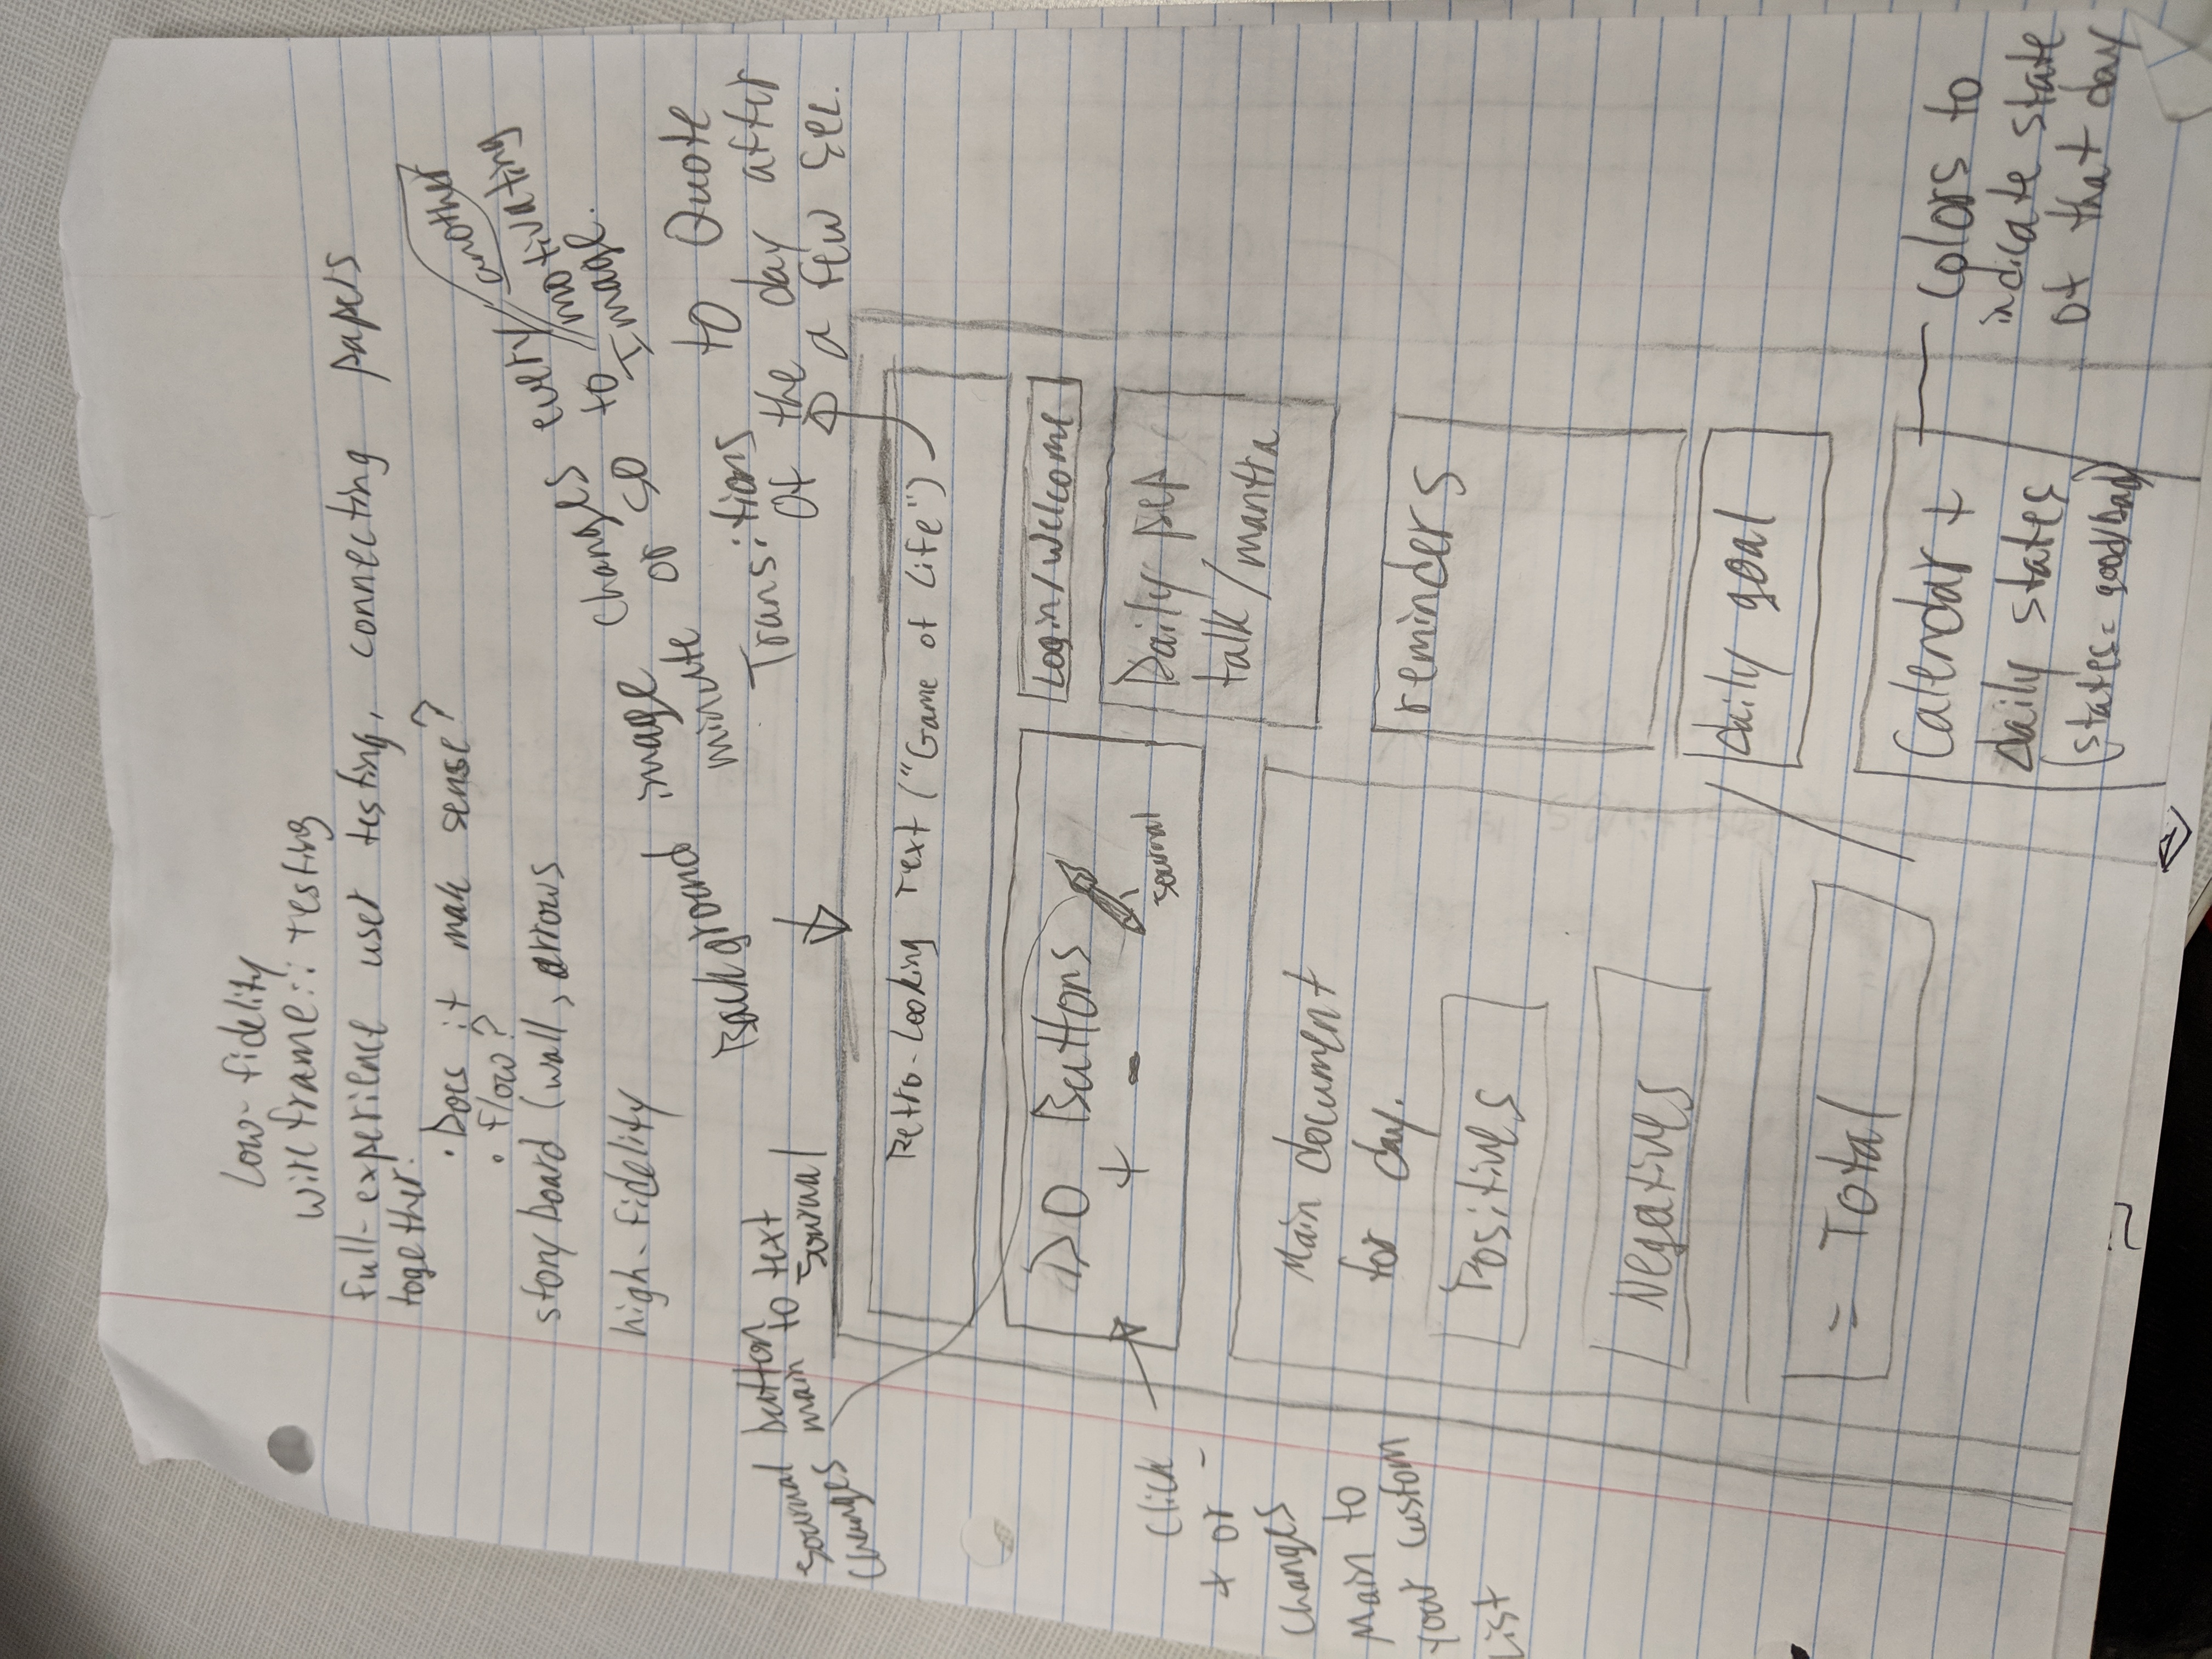 Low-fidelity
wireframe:: testing
full-experience user testing, connecting papers
together.
• Does it make sense?
• Flow?
storyboard (wall, arrows
high-fidelity
Background image changes every
minute or so to another
motivating
Image.
Transitions to Quote
Of the day after
a few sec.
Journal button
changes main to text
Journal
Retro-Looking Text ("Game of Life")
DO Buttons
+ -
Journal
Login/Welcome
Click
+ or -
Changes
Main to
your custom
List
Daily pep
talk/mantra
Main document
for day.
Positives
Negatives
= Total
reminders
daily goal
Calendar +
daily states
(states= good/bad)
Colors to
indicate state
of that day